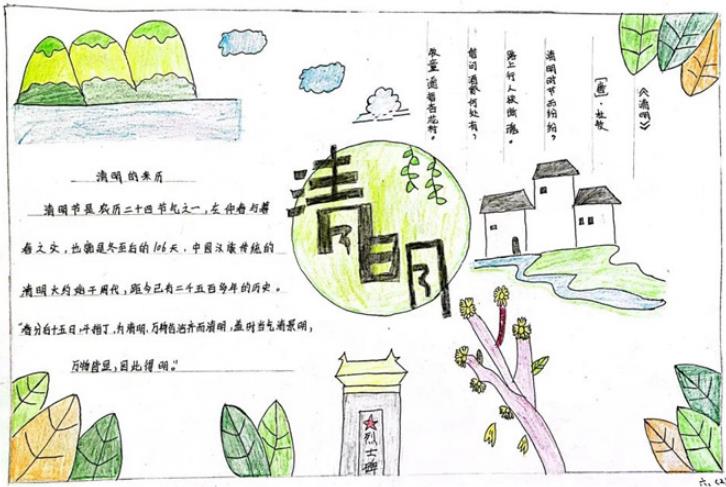 《清明》
[唐]·杜牧
清明时节雨纷纷？
路上行人欲断魂。
借问酒家何处有？
牧童遥指杏花村。
清明
清明的来历
清明节是农历二十四节气之一，在仲春与暮
春之交，也就是冬至后的106天，中国汉族传统的
清明大约始于周代，距今已有二千五百多年的历史。
"春分后十五日，斗指丁，为清明，万物皆洁齐而清明，盖时当气清景明，
万物皆显，因此得明。"
烈士碑